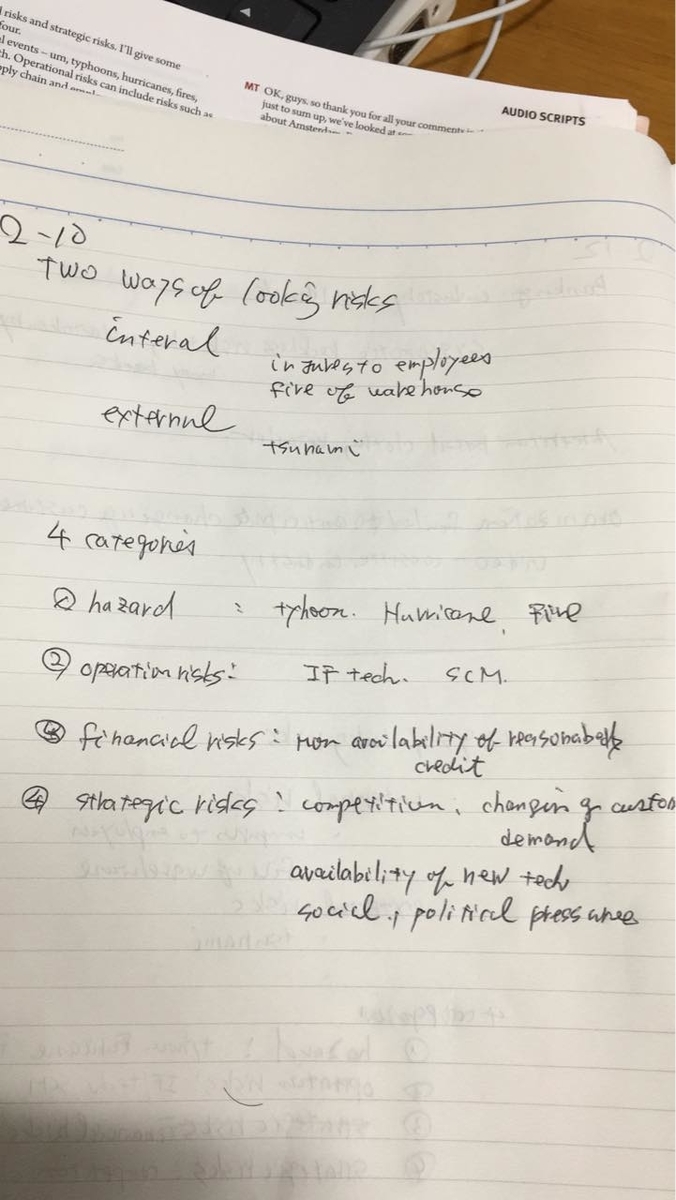 l risks and strategic risks. I'll give some
four.
l events – um, typhoons, hurricanes, fires,
h. Operational risks can include risks such as
ply chain and
MT OK, guys. so thank you for all your comments
just to sum up, we've looked at
about Amsterdam
AUDIO SCRIPTS
2-10
TWO ways of looking risks
interal
injures to employees
fire of warehouse
external
tsunami
4 categories
① hazard : tyhoon. Hurricane, Fire
② operation risks: IF tech. SCM.
③ financial risks: non availability of reasonabely
credit
④ strategic risks: competition, changing custom
demand
availability of new tech
social., political pressures